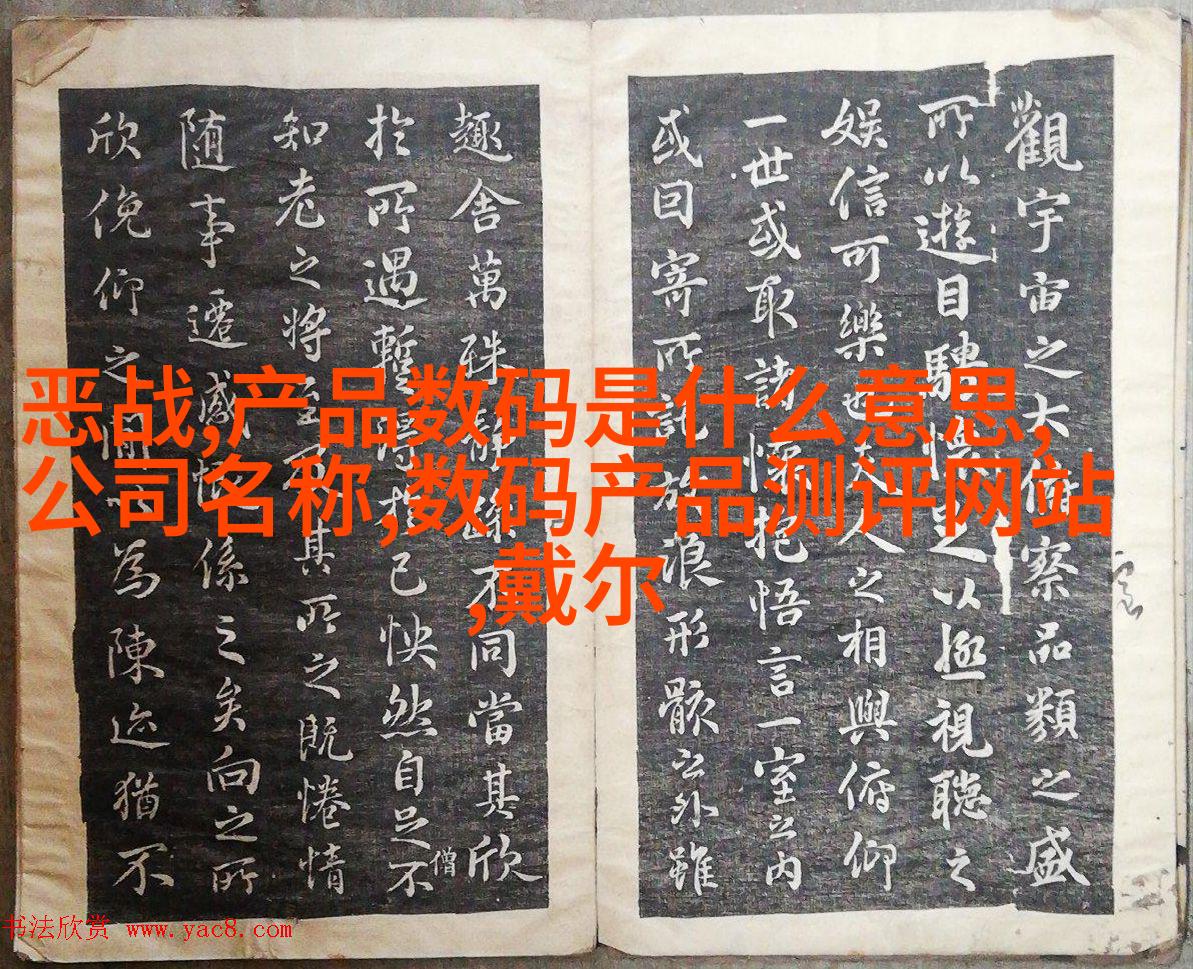 觀宇宙之大俯察品類之盛
所以遊目騁懷足以極視聽之
娱信可樂也夫人之相與俯仰
一世或取諸懷抱悟言一室之内
或因寄所託放浪形骸之外雖
趣舍萬殊靜躁不同當其欣
於所遇暫得於己怏然自足不
僧
知老之將至及其所之既惓情
随事遷感慨係之矣向之所
欣俛仰之間以為陳迹猶不
恶战,产品数码是什么意思,
公司名称,数码产品测评网站
,戴尔
书法欣赏 www.yac8.com